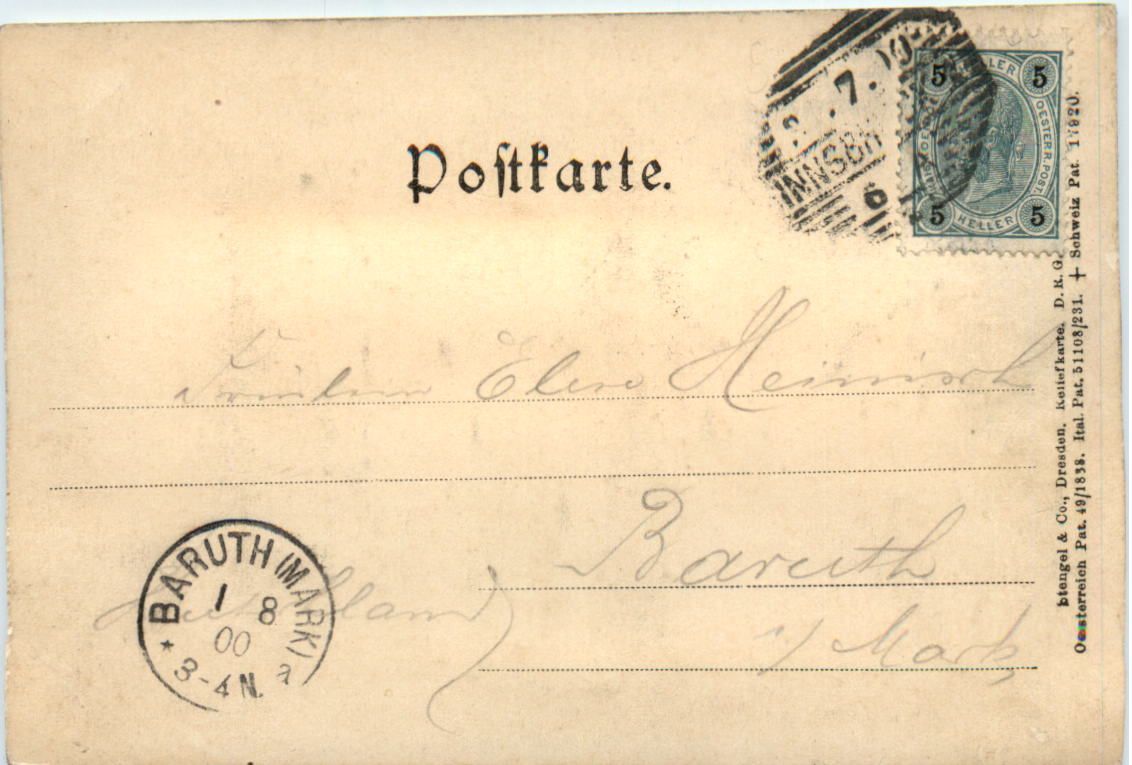 Postkarte.
.7.00
INNSBR
6
5 HELLER 5
OESTERR. POST.
5 HELLER 5
Fräulein Else Heinisch
Baruth
i/ Mark
Deutschland)
BARUTH (MARK)
1 8
00
3-4 N.
* a
Stengel & Co., Dresden. Reliefkarte. D. R. G.
Oesterreich Pat. 49/1838. Ital. Pat. 51108/231. + Schweiz Pat. 17920.